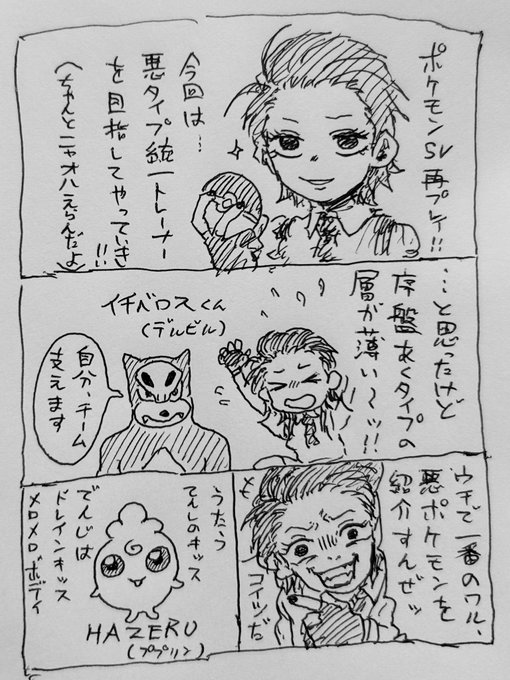 ポケモンSV
再プレイ!!
今回は…
悪タイプ統一トレーナー
を目指してやっていき!!
(ちゃんとニャオハえらんだよ)
…と思ったけど
序盤あくタイプの
層が薄い〜ッ!!
イチベロスくん
(デルビル)
自分、チーム
支えます
ウチで一番のワル、
悪ポケモンを
紹介すんぜッ
コイツだ
うたう
てんしのキッス
でんじは
ドレインキッス
メロメロボディ
HAZERU
(ププリン)